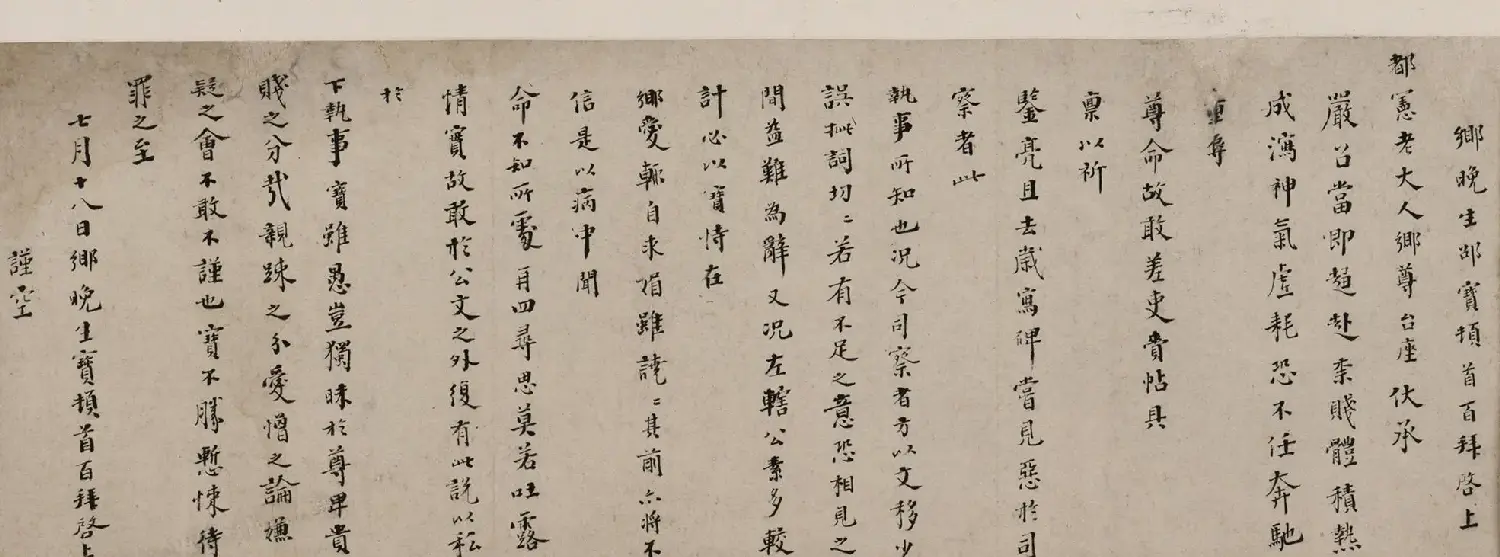 鄉晚生邵寶頓首百拜啓上
都憲老大人鄉尊台座伏承
嚴召當即趨赴柰賤體積熱
成瀉神氣虛耗恐不任奔馳
重辱
尊命故敢差吏賫帖具
禀以祈
鑒亮且去歲寫碑嘗見惡於司
察者此
執事所知也況今司察者方以文移少
誤批詞切〻若有不足之意恐相見之
間益難為辭又況左轄公素多較
計必以寶恃在
鄉愛輒自求媚雖譊〻其前亦將不
信是以病中聞
命不知所處再四尋思莫若吐露
情實故敢於公文之外復有此說以私
於
下執事寶雖愚豈獨昧於尊卑貴
賤之分哉親踈之分愛憎之論嫌
疑之會不敢不謹也寶不勝慙悚待
罪之至
七月十八日鄉晚生寶頓首百拜啓上
謹空